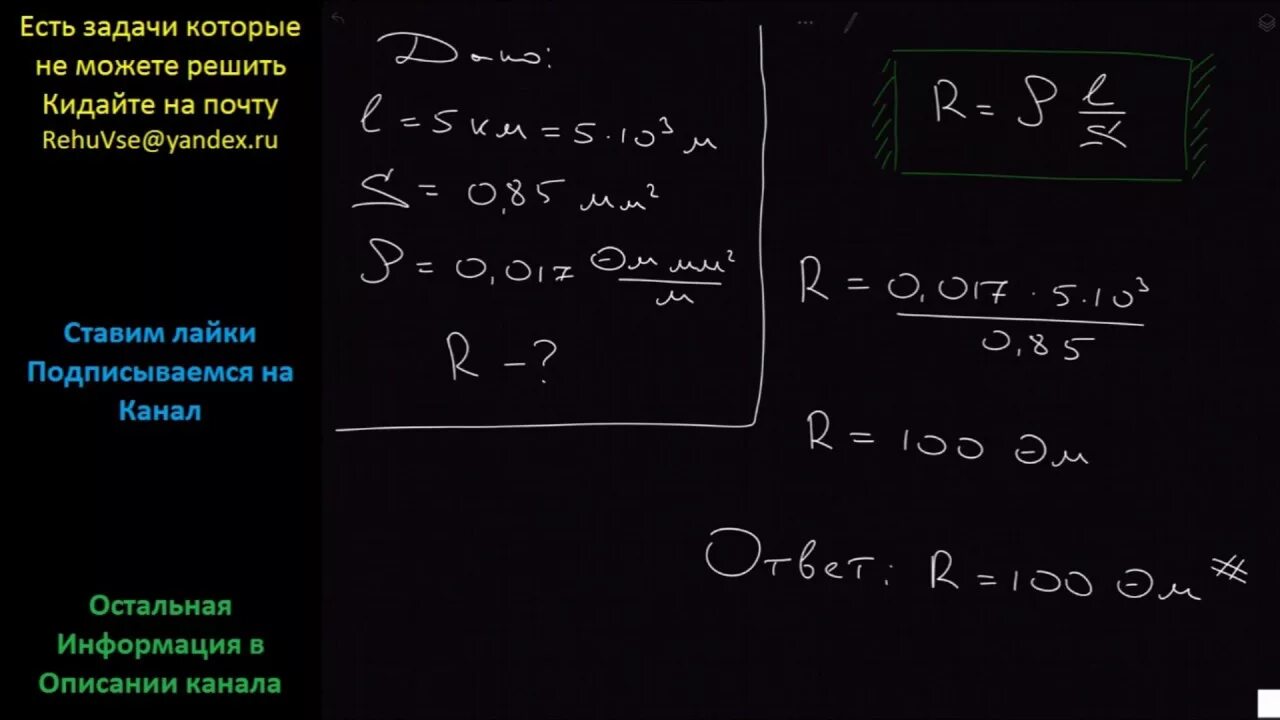 Есть задачи которые
не можете решить
Кидайте на почту
RehuVse@yandex.ru
Ставим лайки
Подписываемся на
Канал
Остальная
Информация в
Описании канала
Дано:
l = 5 км = 5·10³ м
S = 0,85 мм²
ρ = 0,017 Ом мм²/м
R – ?
R = ρ l/S
R = 0,017 · 5·10³ / 0,85
R = 100 Ом
Ответ: R = 100 Ом #